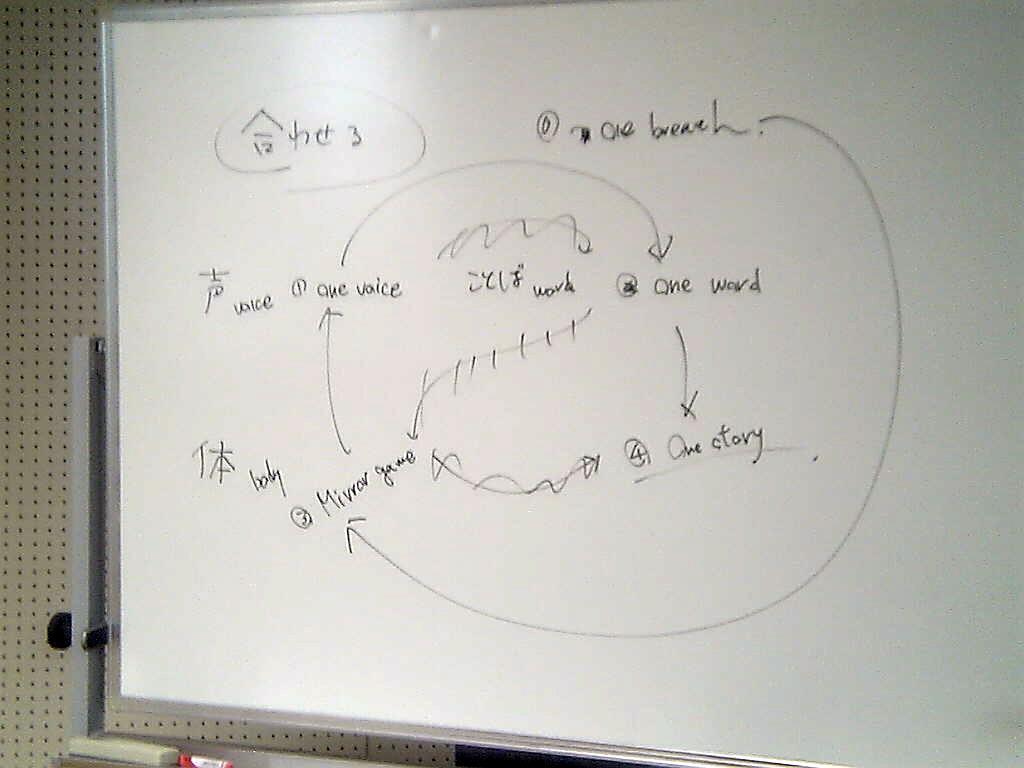 合わせ3
⓪ one breath.
声 voice ① one voice
ことば word ② one word
体 body ③ Mirror game
④ One story